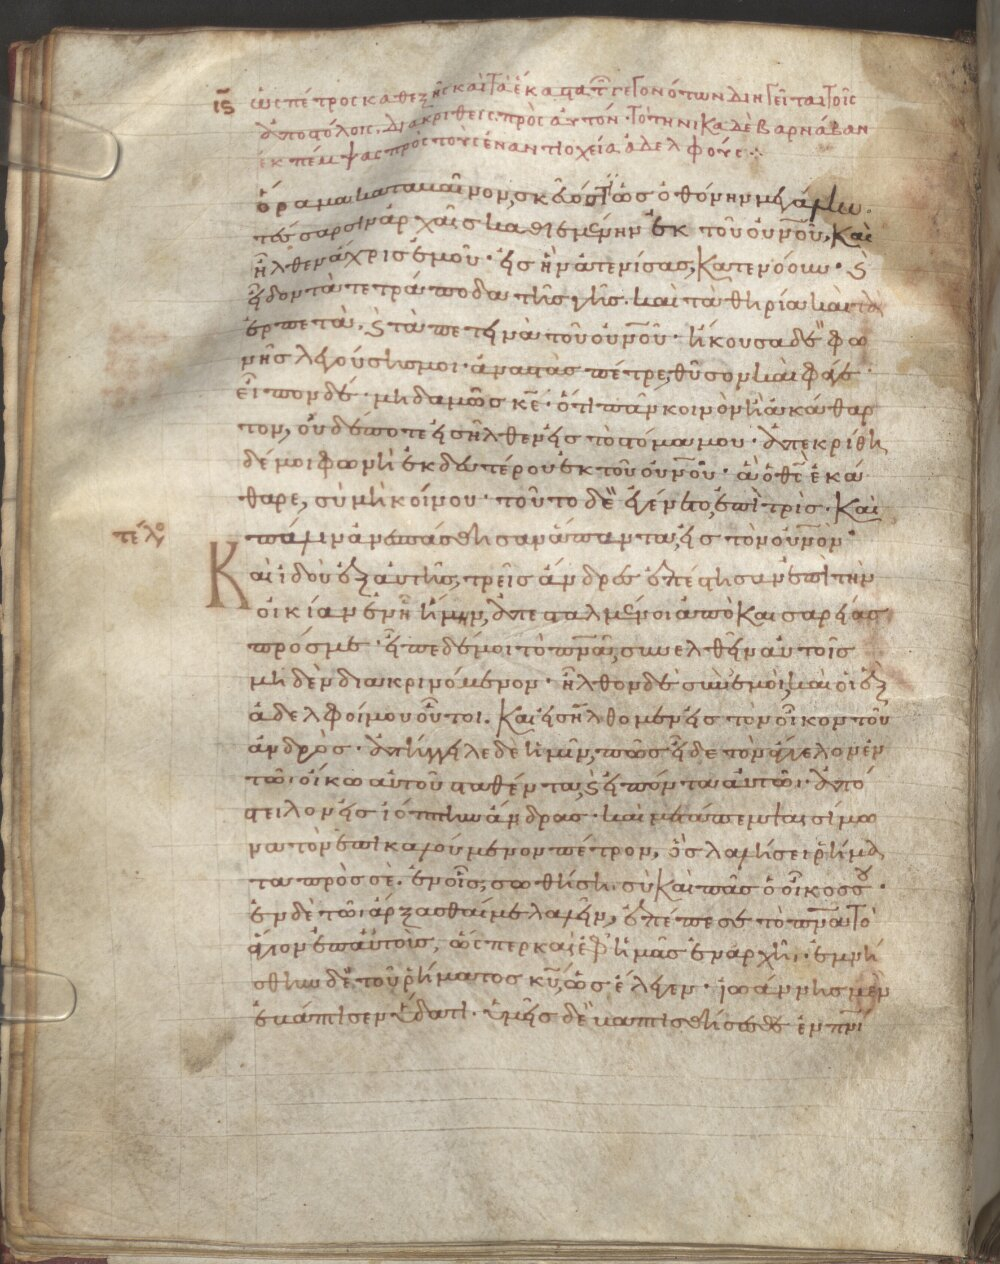 ιϛ ὡς πέτρος καθεξῆς καὶ τὰ ἕκαστα τῶν γεγονότων διηγεῖται τοῖς
ἀποστόλοις· διακριθεῖσι πρὸς αὐτόν· τὸ τηνικαδὲ βαρνάβαν
ἐκπέμψας πρὸς τοὺς ἐν ἀντιοχεία ἀδελφούς ⁘
ὅραμα καταβαῖνον, σκεῦός τι ὡς ὀθόνην μεγάλην·
τέσσαρσιν ἀρχαῖς καθιεμένην ἐκ τοῦ οὐνοῦ, καὶ
ἦλθεν ἄχρις ἐμοῦ· εἰς ἣν ἀτενίσας, κατενόουν· ϗ
εἶδον τὰ τετράποδα τῆς γῆς· καὶ τὰ θηρία καὶ τὰ
ἑρπετὰ· ϗ τὰ πετεινὰ τοῦ οὐνοῦ· ἤκουσα δὲ φω
νῆς λεγούσης μοι· ἀναστὰς πέτρε, θῦσον καὶ φάγε·
εἶπον δέ· μηδαμῶς κε· ὅτι πᾶν κοινὸν ἢ ἀκάθαρ
τον, οὐδέποτε εἰσῆλθεν εἰς τὸ στόμα μου· ἀπεκρίθη
δέ μοι φωνὴ ἐκ δευτέρου ἐκ τοῦ οὐνοῦ· ἃ ὁ θς ἐκά
θαρε, σὺ μὴ κοίνου· τοῦτο δὲ ἐγένετο, ἐπὶ τρίς· καὶ
τέλος πάλιν ἀνεσπάσθησαν ἅπαντα, εἰς τὸν οὐνόν·
Καὶ ἰδοὺ ἐξαυτῆς, τρεῖς ἄνδρες ἐπέστησαν ἐπὶ τὴν
οἰκίαν ἐν ᾗ ἤμην, ἀπεσταλμένοι ἀπὸ καισαρείας
πρός με· εἶπε δέ μοι τὸ πνα, συνελθεῖν αὐτοῖς
μηδὲν διακρινόμενον· ἦλθον δὲ σὺν ἐμοὶ, καὶ οἱ ἓξ
ἀδελφοί μου οὗτοι· καὶ εἰσήλθομεν εἰς τὸν οἶκον τοῦ
ἀνδρὸς· ἀπήγγειλε δὲ ἡμῖν, πῶς εἶδε τὸν ἄγγελον ἐν
τῶ οἴκω αὐτοῦ σταθέντα, ϗ εἰπόντα αὐτῶ· ἀπό
στειλον εἰς ἰόππην ἄνδρας· καὶ μετάπεμψαι σίμω
να τὸν ἐπικαλούμενον πέτρον, ὃς λαλήσει ῥήμα
τα πρὸς σὲ· ἐν οἷς, σωθήσῃ σὺ καὶ πᾶς ὁ οἶκος σου·
ἐν δὲ τῶ ἄρξασθαί με λαλεῖν, ἐπέπεσε τὸ πνα τὸ
ἅγιον ἐπ αὐτοῖς, ὥσπερ καὶ ἐφ ἡμᾶς ἐν ἀρχῆ· ἐμνή
σθην δὲ τοῦ ῥήματος κυ, ὡς ἔλεγεν· ἰωάννης μὲν
ἐβάπτισεν ὕδατι· ὑμεῖς δὲ βαπτισθήσεσθε ἐν πνι